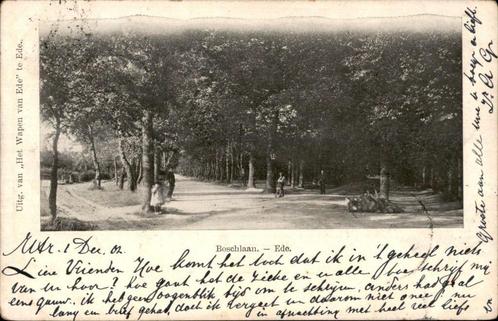 Uitg. van „Het Wapen van Ede" te Ede.
Boschlaan. — Ede.
1 Dec. 02
Lieve Vrienden Hoe komt het toch dat ik in 't geheel niets
van U hoor? hoe gaat het de zieke en u alle toe schrijf mij
eens gauw, ik heb geen oogenblik tijd om te schrijven, anders had gij al
lang een brief gehad, doch ik vergeet u daarom niet hoor, nu
in afwachting met heel veel liefs
Groete aan alle